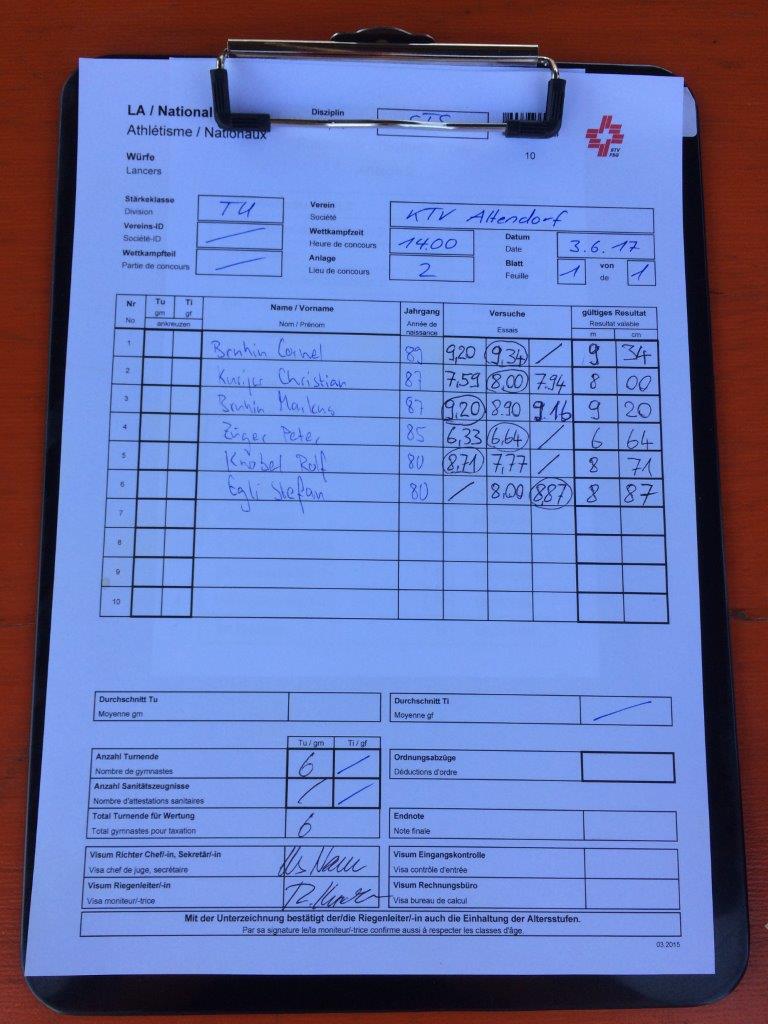 LA / National
Disziplin
Athlétisme / Nationaux
STV
FSG
Würfe
10
Lancers
Stärkeklasse
Division
TU
Verein
Société
KTV Altendorf
Vereins-ID
Société-ID
/
Wettkampfzeit
Heure de concours
14.00
Datum
Date
3.6.17
Wettkampfteil
Partie de concours
/
Anlage
Lieu de concours
2
Blatt
Feuille
1
von
de
1
Nr Tu Ti Name / Vorname Jahrgang Versuche gültiges Resultat
No gm gf Nom / Prénom Année de naissance Essais Résultat valable
ankreuzen m cm
1 Bruhin Cornel 89 9,20 9,34 / 9 34
2 Christian 87 7,59 8,00 7.94 8 00
3 Bruhin Markus 87 9,20 8.90 9.16 9 20
4 Züger Peter 85 6,33 6,64 / 6 64
5 Knobel Rolf 80 8,71 7,77 / 8 71
6 Egli Stefan 80 / 8.00 8,87 8 87
7
8
9
10
Durchschnitt Tu
Moyenne gm
Durchschnitt Ti
Moyenne gf
/
Tu / gm Ti / gf
Anzahl Turnende
Nombre de gymnastes
6 /
Ordnungsabzüge
Déductions d'ordre
Anzahl Sanitätszeugnisse
Nombre d'attestations sanitaires
/ /
Total Turnende für Wertung
Total gymnastes pour taxation
6
Endnote
Note finale
Visum Richter Chef/-in, Sekretär/-in
Visa chef de juge, secrétaire
Visum Eingangskontrolle
Visa contrôle d'entrée
Visum Riegenleiter/-in
Visa moniteur/-trice
Visum Rechnungsbüro
Visa bureau de calcul
Mit der Unterzeichnung bestätigt der/die Riegenleiter/-in auch die Einhaltung der Altersstufen.
Par sa signature le/la moniteur/-trice confirme aussi à respecter les classes d'âge.
03.2015